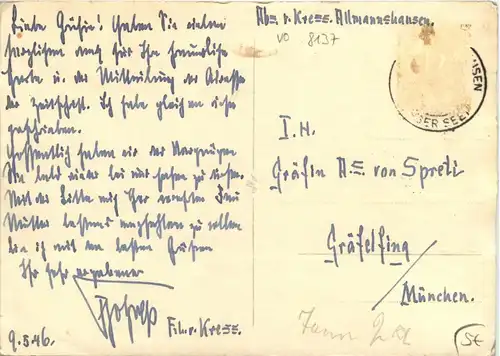 Liebe Gräfin! Haben Sie vielen
herzlichen Dank für Ihre freundliche
Karte u. die Mitteilung der Adresse
der Zeitschrift. Ich habe gleich an diese
geschrieben.
Hoffentlich haben wir das Vergnügen
Sie bald wieder bei uns sehen zu dürfen.
Mit der Bitte mich Ihrer verehrten Frau
Mutter bestens empfehlen zu wollen
bin ich mit den besten Grüßen
Ihr sehr ergebener
9.5.46.
v. Kress.
Abs v. Kress. Allmannshausen.
8137
HAUSEN
SEE
I. H.
Gräfin A. von Spreti
Gräfelfing
München.
St